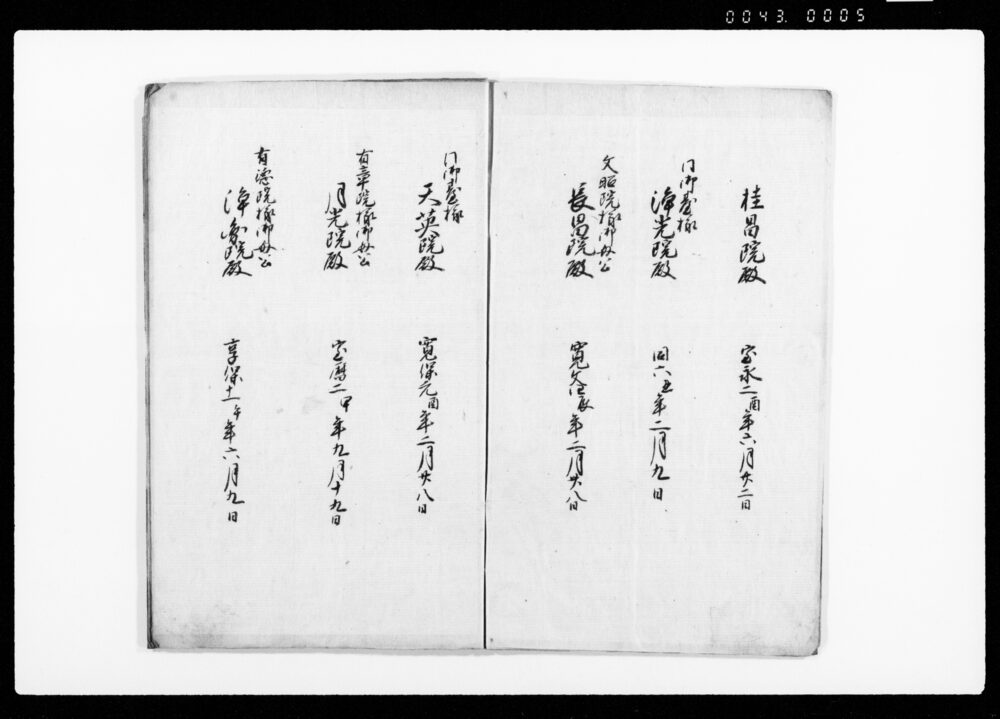 0043. 0005
桂昌院殿
宝永二酉年六月廿二日
同御臺様
浄光院殿
同六丑年二月九日
文昭院様御母公
長昌院殿
寛文四辰年二月廿八日
同御臺様
天英院殿
寛保元酉年二月廿八日
有章院様御母公
月光院殿
宝暦二申年九月十九日
有徳院様御母公
浄圓院殿
享保十一午年六月九日